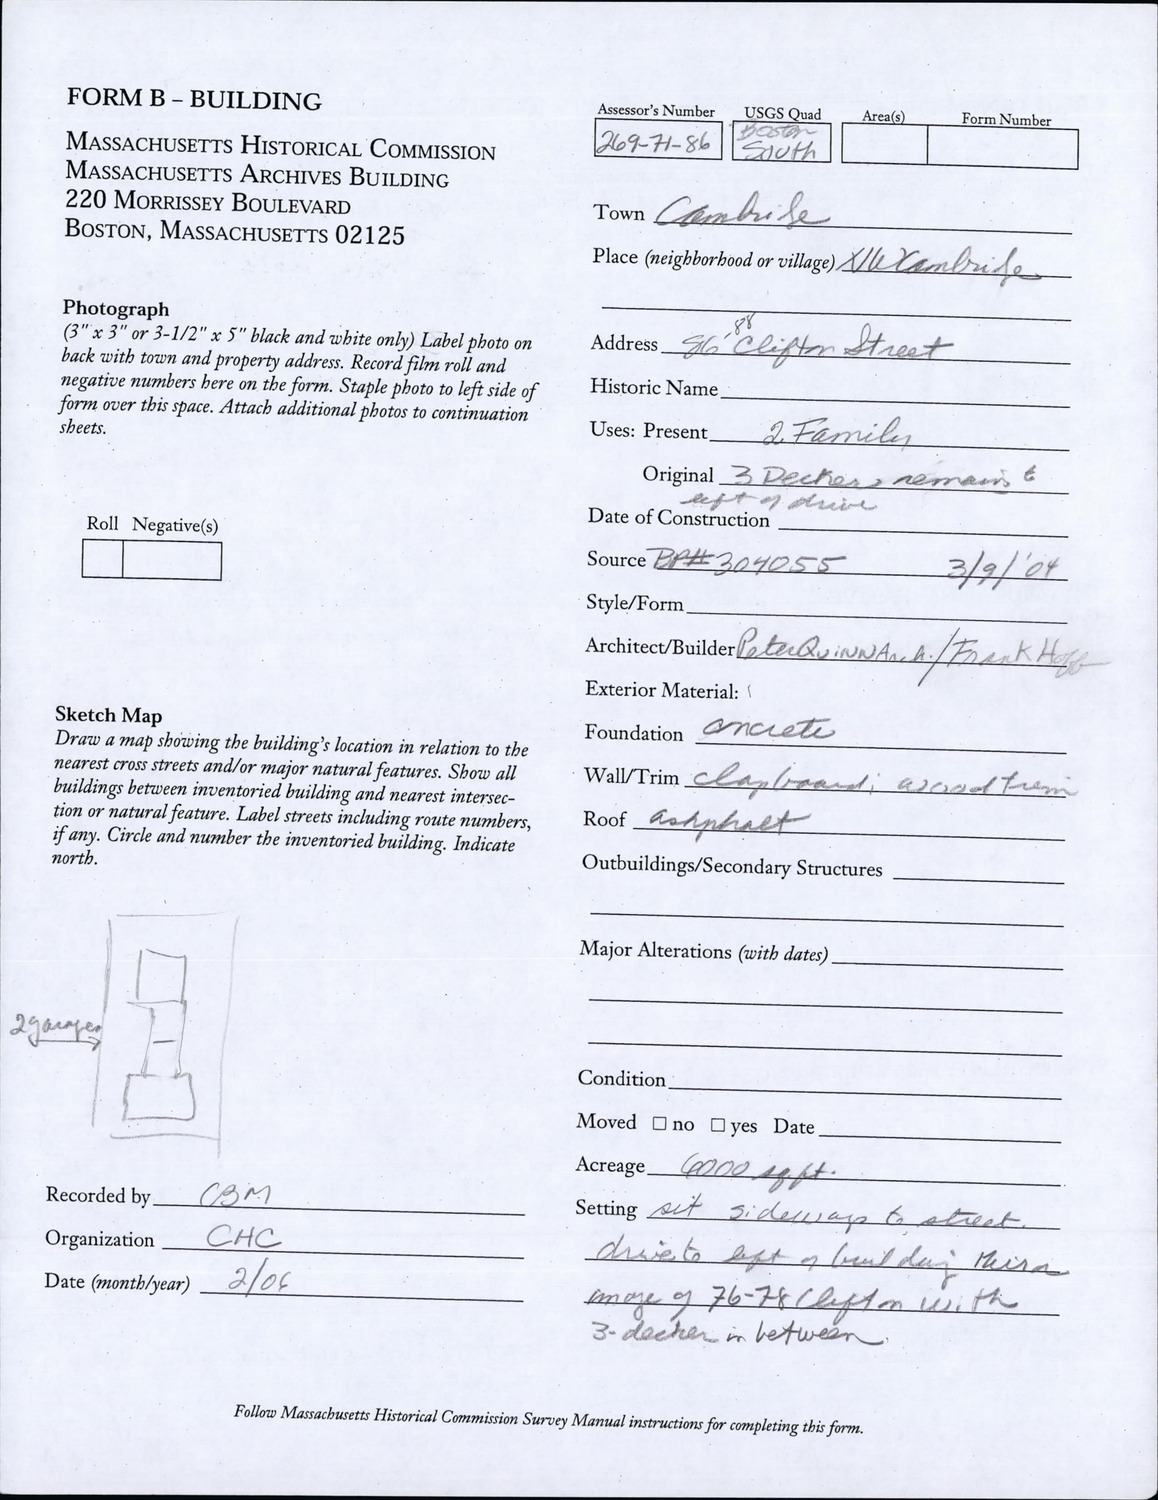 FORM B – BUILDING
MASSACHUSETTS HISTORICAL COMMISSION
MASSACHUSETTS ARCHIVES BUILDING
220 MORRISSEY BOULEVARD
BOSTON, MASSACHUSETTS 02125
Assessor's Number USGS Quad Area(s) Form Number
269-71-86 Boston South
Town Cambridge
Place (neighborhood or village) NW Cambridge
Address 86-88 Clifton Street
Historic Name
Uses: Present 2 Family
Original 3 Decker, remains to
left of drive
Date of Construction
Source BP# 304055 3/9/'04
Style/Form
Architect/Builder Peter Quinn Arch./Frank Hoff
Exterior Material:
Foundation concrete
Wall/Trim clapboard; wood trim
Roof ashphalt
Outbuildings/Secondary Structures
Major Alterations (with dates)
Condition
Moved ☐ no ☐ yes Date
Acreage 6000 sq ft.
Setting sit sideways to street.
drive to left of building Mirror
image of 76-78 Clifton with
3-decker in between
Photograph
(3" x 3" or 3-1/2" x 5" black and white only) Label photo on
back with town and property address. Record film roll and
negative numbers here on the form. Staple photo to left side of
form over this space. Attach additional photos to continuation
sheets.
Roll Negative(s)
Sketch Map
Draw a map showing the building's location in relation to the
nearest cross streets and/or major natural features. Show all
buildings between inventoried building and nearest intersec-
tion or natural feature. Label streets including route numbers,
if any. Circle and number the inventoried building. Indicate
north.
2 garages
Recorded by CBM
Organization CHC
Date (month/year) 2/06
Follow Massachusetts Historical Commission Survey Manual instructions for completing this form.